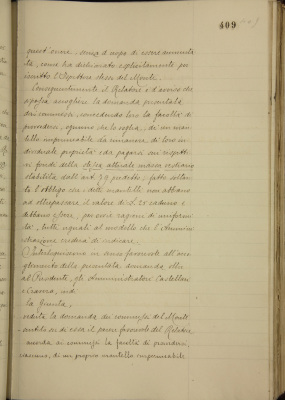 409
quest'onere, senza d'uopo di essere commentata
tà, come ha dichiarato esplicitamente per
iscritto l'Ispettore stesso del Monte.
Conseguentemente il Relatore è d'avviso che
si possa accogliere la domanda presentata
dai commessi, concedendo loro la facoltà di
provvedersi, ognuno che lo voglia, di un man-
tello impermeabile da rimanere, di loro in-
dividuale proprietà e da pagarsi coi rispetti-
vi fondi della stessa attuale massa vestiario
stabilita dall'art. 79 predetto; fatto altresì
l'obbligo che detti mantelli non abbiano
ad oltrepassare il valore di L. 25 caduno e
debbano essere, per ovvie ragioni di uniformi-
tà, tutti uguali al modello che l'Ammini-
strazione crederà di indicare.
Interloquiscono in senso favorevole all'acco-
glimento della presentata domanda oltre
al Presidente, gli Amministratori Castellani
e Cravero, ed
la Giunta,
veduta la domanda dei commessi del Monte
sentito su di essa il parere favorevole del Relatore,
accorda ai commessi la facoltà di provvedersi,
ciascuno, di un proprio mantello impermeabile